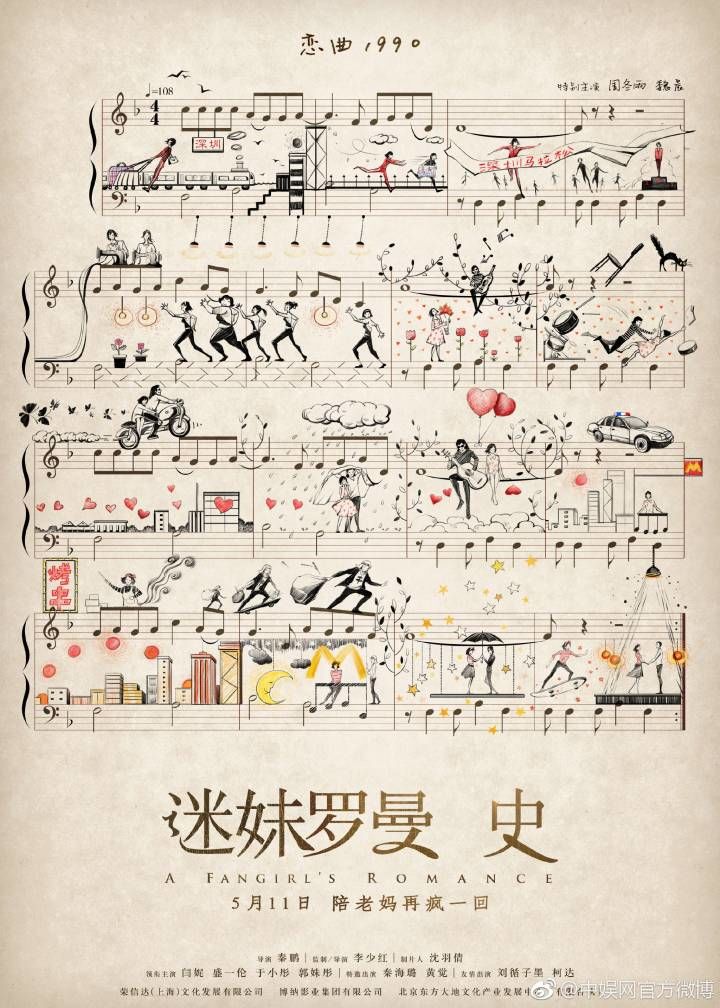 恋曲1990
特别主演 周冬雨 魏晨
♩=108
深圳
深圳马拉松
M
烤串
M
迷妹罗曼 史
A FANGIRL'S ROMANCE
5月11日 陪老妈再疯一回
导演 秦鹏 | 监制/导演 李少红 | 制片人 沈羽倩
领衔主演 闫妮 盛一伦 于小彤 郭姝彤 | 特邀出演 秦海璐 黄觉 | 友情出演 刘循子墨 柯达
荣信达(上海)文化发展有限公司 博纳影业集团有限公司 北京东方大地文化产业发展中心
@中娱网官方微博